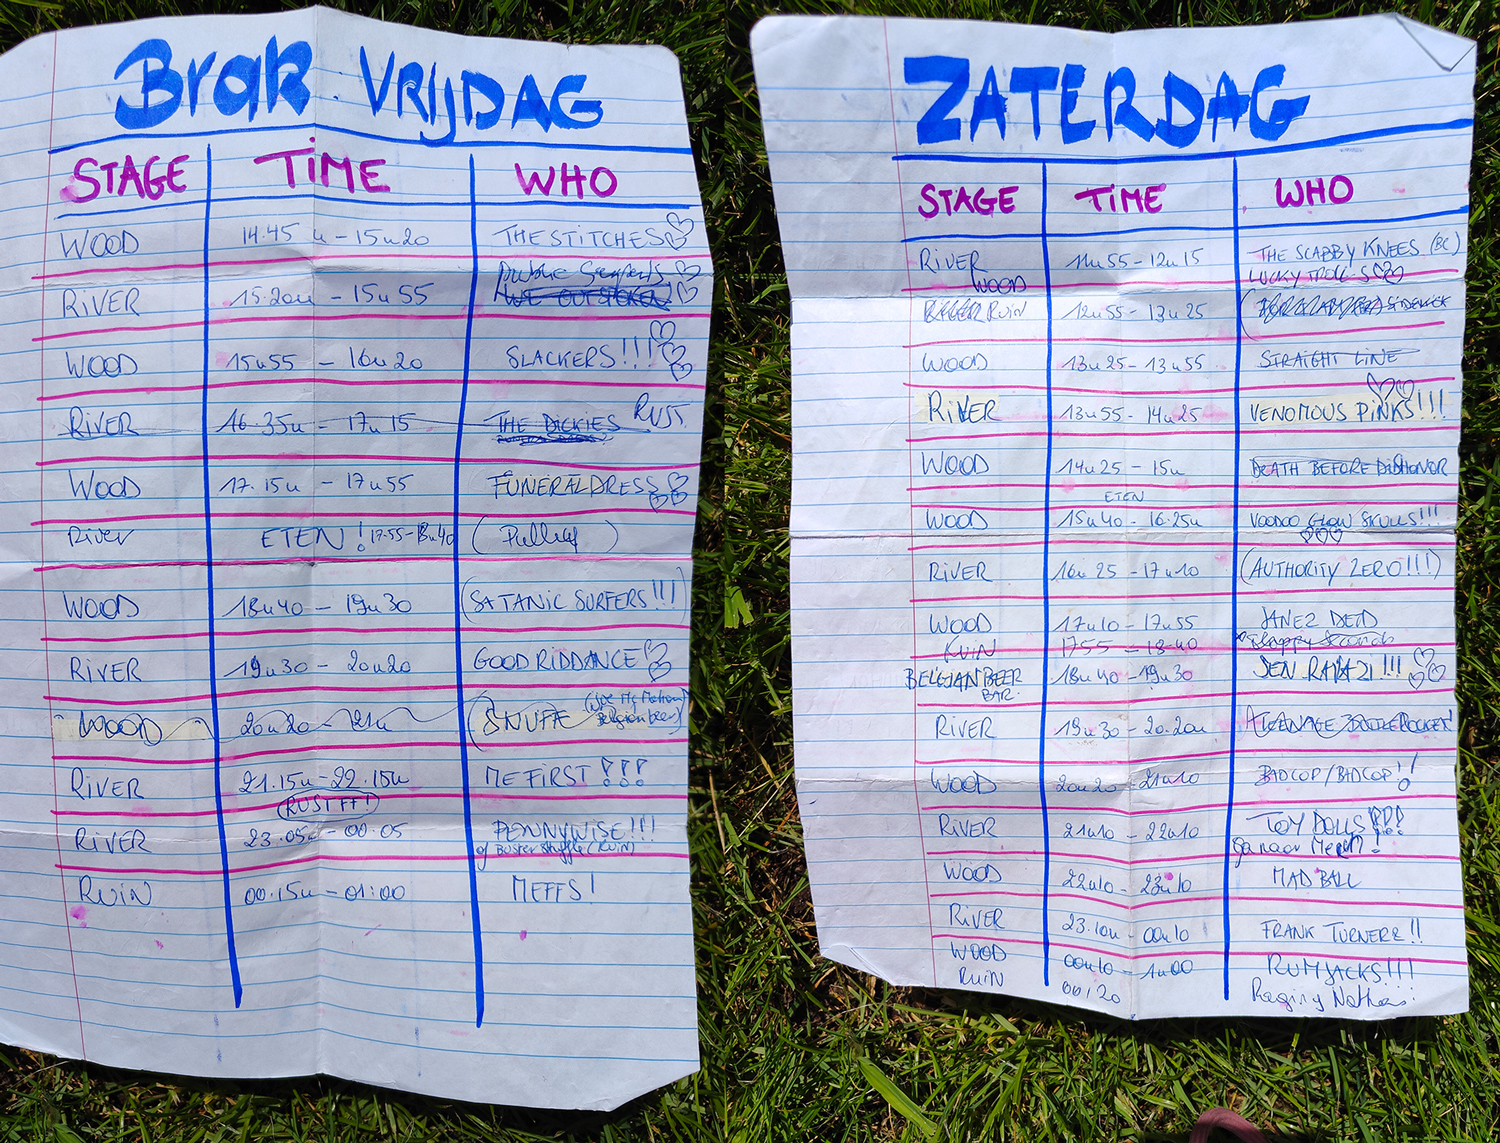 Brak VRIJDAG
STAGE TIME WHO
WOOD 14.45u - 15u20 THE STITCHES
Public Serpents
RIVER 15.20u - 15u55
WOOD 15u55 - 16u20 SLACKERS!!!
RIVER 16.35u - 17u15 THE DICKIES RUST
WOOD 17.15u - 17u55 FUNERAL DRESS
River ETEN! 17.55-18u40 (Pulley)
WOOD 18u40 - 19u30 (SATANIC SURFERS!!!)
RIVER 19u30 - 20u20 GOOD RIDDANCE
WOOD 20u20 - 21u (SNUFF
Belgian beer)
RIVER 21.15u - 22.15u ME FIRST!!!
RUST FF!
RIVER 23.05u - 00.05 PENNYWISE!!!
of Buster Shuffle (RUIN)
RUIN 00.15u - 01:00 MEFFS!
ZATERDAG
STAGE TIME WHO
RIVER 11u55 - 12u15 THE SCABBY KNEES (BC)
WOOD LUCKY TROLLS
RUIN 12u55 - 13u25 SIDEKICK
WOOD 13u25 - 13u55 STRAIGHT LINE
RIVER 13u55 - 14u25 VENOMOUS PINKS!!!
WOOD 14u25 - 15u DEATH BEFORE DISHONOR
ETEN
WOOD 15u40 - 16.25u VOODOO GLOW SKULLS!!!
RIVER 16u25 - 17u10 (AUTHORITY ZERO!!!)
WOOD 17u10 - 17u55
RUIN 1755 - 18-40
BELGIAN BEER 18u40 - 19u30 JEN RAZAZI!!!
BAR
RIVER 19u30 - 20.20u TEENAGE BOTTLEROCKET!
WOOD 20u20 - 21u10 BADCOP/BADCOP!!
RIVER 21u10 - 22u10 TOY DOLLS!!!
ga naar Merch!
WOOD 22u10 - 23u10 MADBALL
RIVER 23.10u - 00u10 FRANK TURNER!!
WOOD 00u10 - 1u00 RUMJACKS!!!
RUIN 00,20 Raging Nathans!